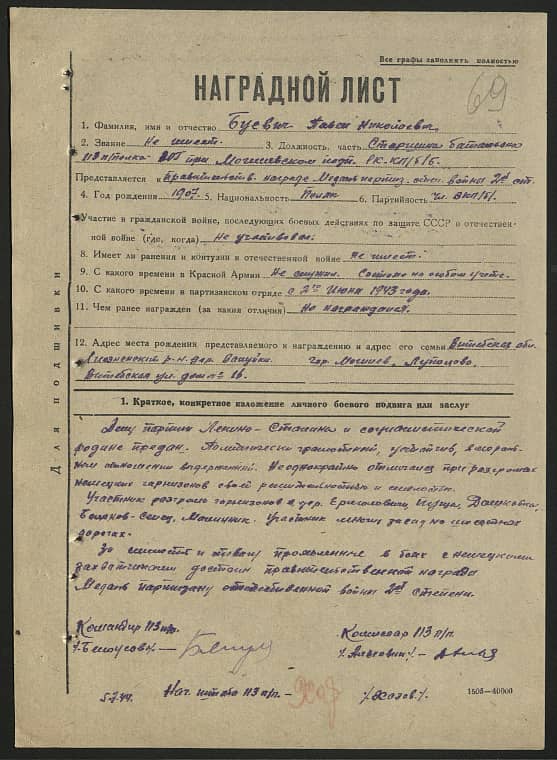 Все графы заполнить полностью
69
НАГРАДНОЙ ЛИСТ
1. Фамилия, имя и отчество Буевич Павел Николаевич
2. Звание Не имеет. 3. Должность, часть Старшина батальона
113 п/полка ВОГ при Могилевском подп. РК-КП/б/Б.
Представляется к правительств. награде Медаль партиз. отеч. войны 2й ст.
4. Год рождения 1907. 5. Национальность Поляк 6. Партийность чл. ВКП/б/.
Участие в гражданской войне, последующих боевых действиях по защите СССР и отечествен-
ной войне (где, когда) Не участвовал.
8. Имеет ли ранения и контузии в отечественной войне не имеет.
9. С какого времени в Красной Армии Не служил. Состоял на особом учете.
10. С какого времени в партизанском отряде с 2го Июня 1943 года.
11. Чем ранее награжден (за какие отличия) Не награждался.
12. Адрес места рождения представляемого к награждению и адрес его семьи Витебская обл.
Лиозненский р-н. дер. гор. Могилев, Луполово,
Витебская ул. дом № 16.
Для подшивки
1. Краткое, конкретное изложение личного боевого подвига или заслуг
Делу партии Ленина-Сталина и социалистической
родине предан. Политически грамотный, устойчив, в мораль-
ном отношении выдержанный. Неоднократно отличался при разгромах
немецких гарнизонов своей решительностью и смелостью.
Участник разгрома гарнизонов в дер. Ермоловичи, Дашковка,
Машинник. Участник многих засад на шоссейных
дорогах.
За смелость и отвагу проявленные в боях с немецкими
захватчиками достоин правительственной награды
Медаль партизану отечественной войны 2й степени.
Командир 113 п/п. Комиссар 113 п/п.
/Белоусов/-
5.7.44. Нач. штаба 113 п/п. - /Хазов/.
1505—40000